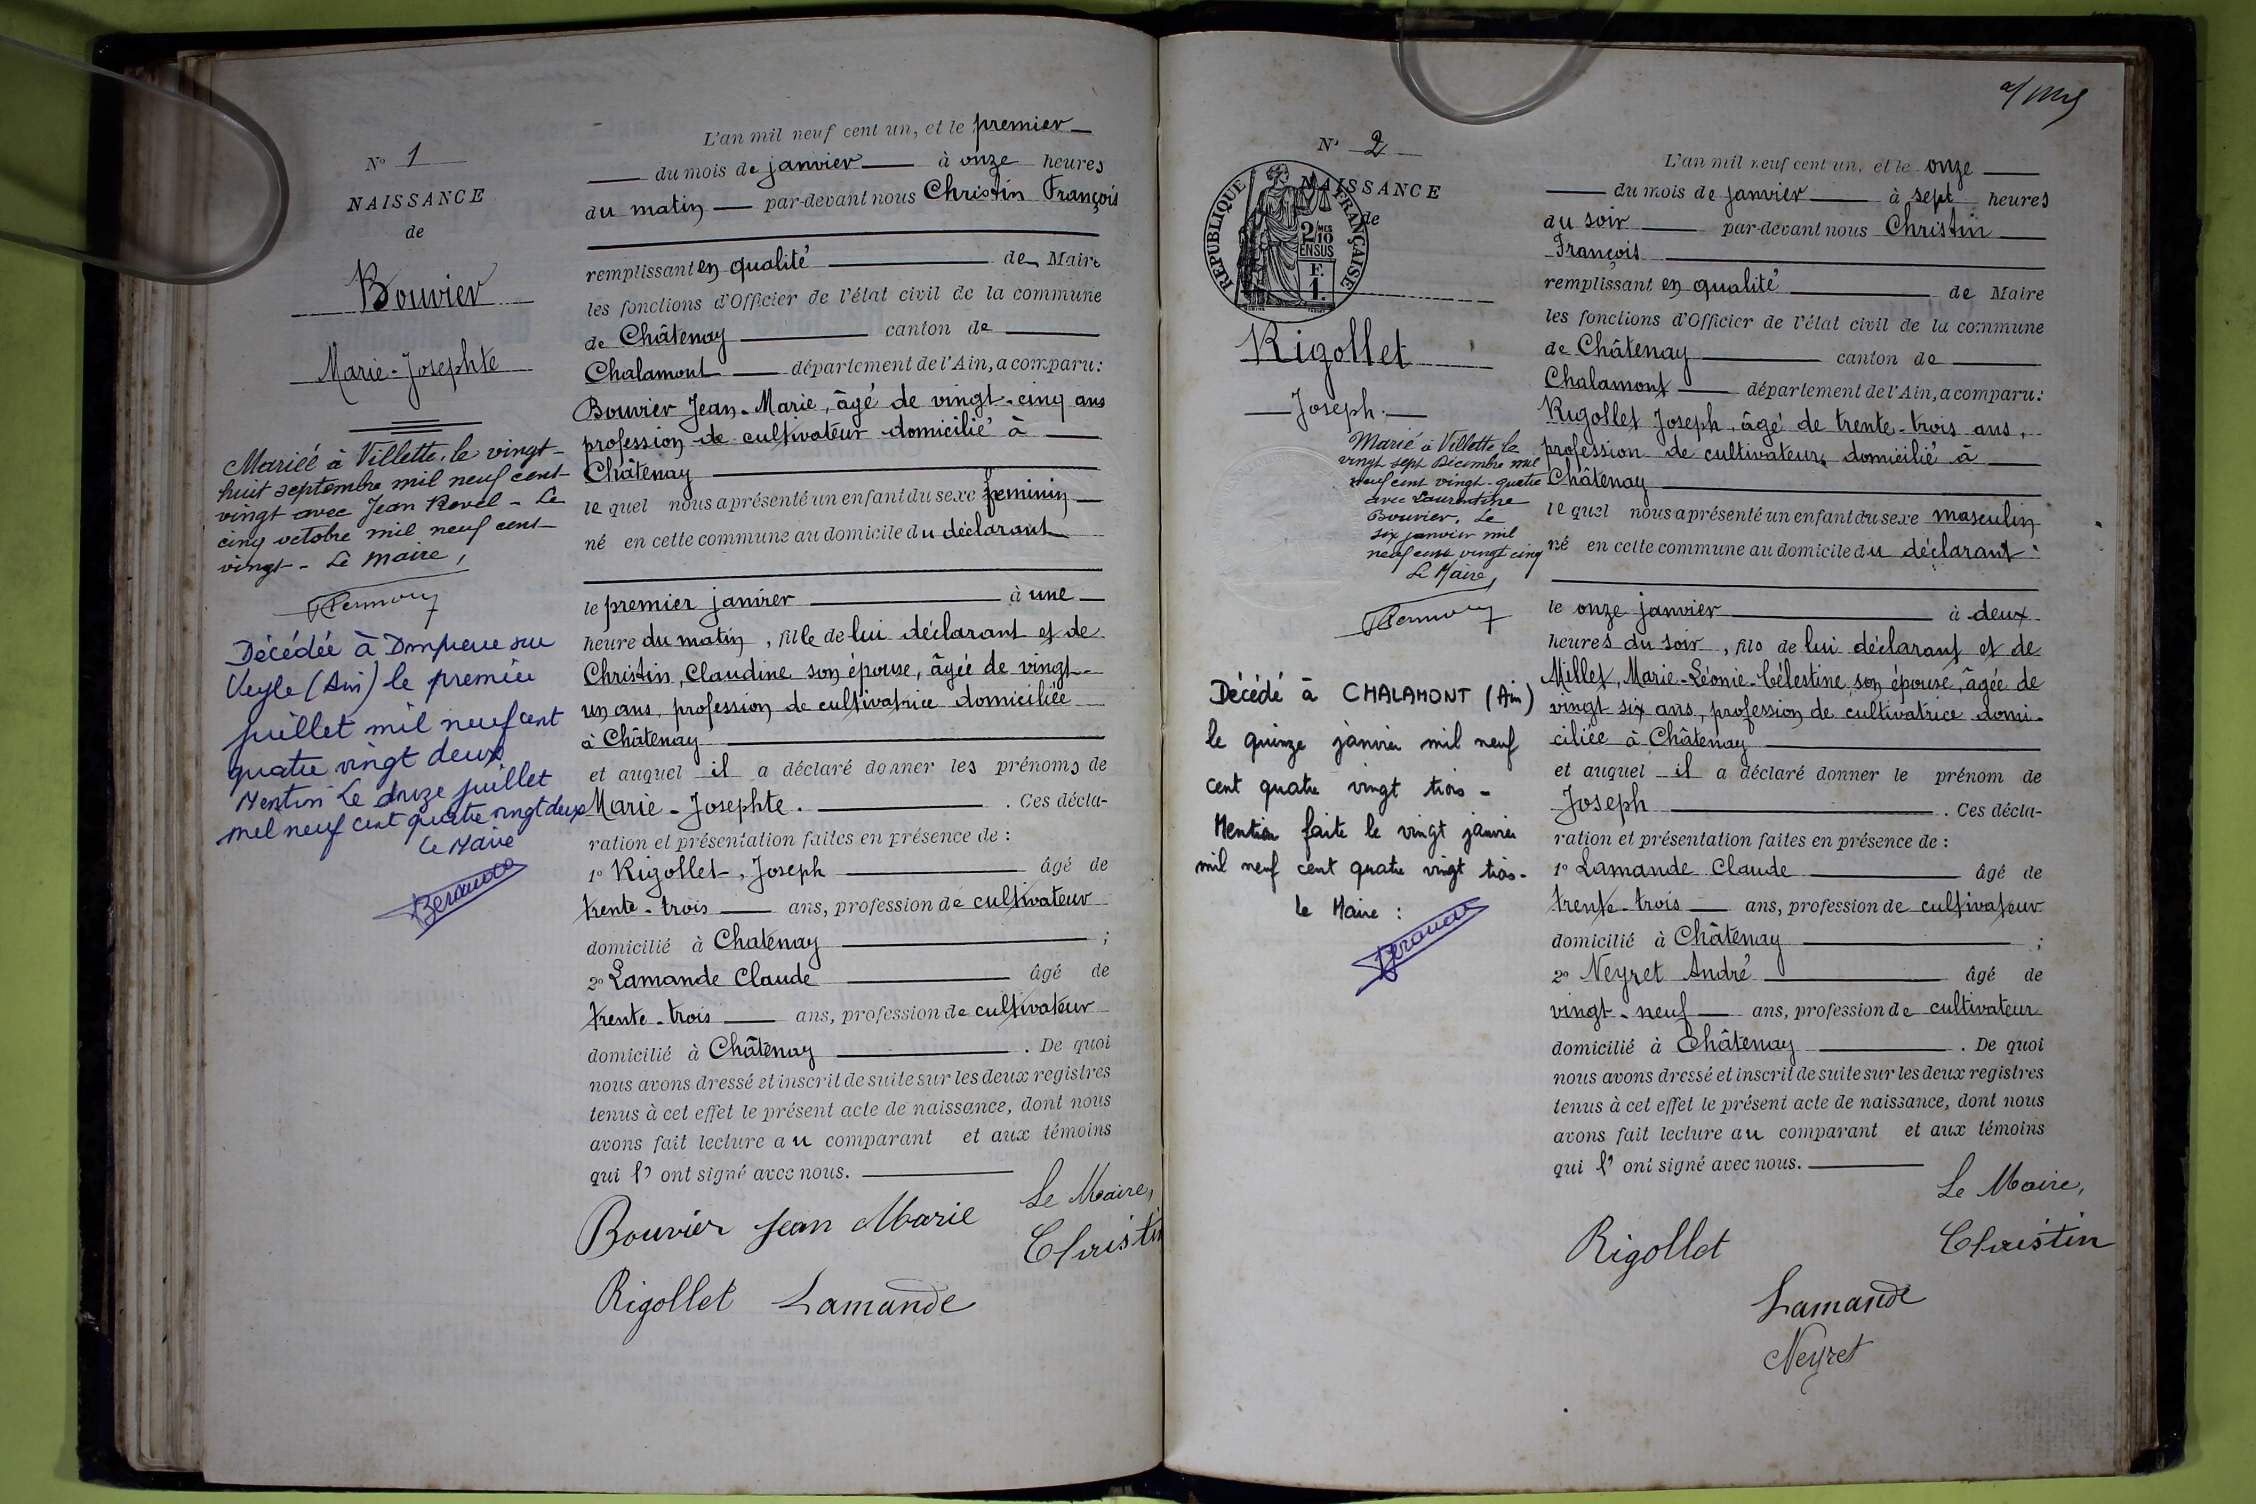 N° 1
NAISSANCE
de
Bouvier
Marie-Josephte
Mariée à Villette, le vingt-
huit septembre mil neuf cent
vingt avec Jean Revel - Le
cinq octobre mil neuf cent
vingt - Le Maire,
Décédée à Dompierre sur
Veyle (Ain) le premier
juillet mil neuf cent
quatre vingt deux
Mention Le douze juillet
mil neuf cent quatre vingt deux
Le Maire
L'an mil neuf cent un, et le premier
du mois de janvier à onze heures
du matin par-devant nous Christin François
remplissant en qualité de Maire
les fonctions d'Officier de l'état civil de la commune
de Châtenay canton de
Chalamont département de l'Ain, a comparu:
Bouvier Jean-Marie, âgé de vingt-cinq ans
profession de cultivateur domicilié à
Châtenay
lequel nous a présenté un enfant du sexe féminin
né en cette commune au domicile du déclarant
le premier janvier à une
heure du matin, fille de lui déclarant et de
Christin, Claudine son épouse, âgée de vingt-
un ans, profession de cultivatrice domiciliée
à Châtenay
et auquel il a déclaré donner les prénoms de
Marie-Josephte. Ces décla-
ration et présentation faites en présence de :
1° Rigollet, Joseph âgé de
trente-trois ans, profession de cultivateur
domicilié à Chatenay ;
2° Lamande Claude âgé de
trente-trois ans, profession de cultivateur
domicilié à Châtenay . De quoi
nous avons dressé et inscrit de suite sur les deux registres
tenus à cet effet le présent acte de naissance, dont nous
avons fait lecture au comparant et aux témoins
qui l' ont signé avec nous.
Le Maire,
Bouvier Jean Marie
Christin
Rigollet Lamande
N° 2
NAISSANCE
de
REPUBLIQUE FRANÇAISE
2/MES
10
EN SUS
F.
1.
Rigollet
Joseph.
Marié à Villette le
vingt sept décembre mil
neuf cent vingt-quatre
avec Laurentine
Bouvier. Le
six janvier mil
neuf cent vingt cinq
Le Maire,
Décédé à CHALAMONT (Ain)
le quinze janvier mil neuf
cent quatre vingt trois -
Mention faite le vingt janvier
mil neuf cent quatre vingt trois -
Le Maire :
L'an mil neuf cent un, et le onze
du mois de janvier à sept heures
du soir par-devant nous Christin
François
remplissant en qualité de Maire
les fonctions d'Officier de l'état civil de la commune
de Châtenay canton de
Chalamont département de l'Ain, a comparu:
Rigollet Joseph, âgé de trente-trois ans,
profession de cultivateur, domicilié à
Châtenay
lequel nous a présenté un enfant du sexe masculin
né en cette commune au domicile du déclarant
le onze janvier à deux
heures du soir, fils de lui déclarant et de
Millet, Marie-Léonie-Célestine, son épouse, âgée de
vingt six ans, profession de cultivatrice domi-
ciliée à Châtenay
et auquel il a déclaré donner le prénom de
Joseph . Ces décla-
ration et présentation faites en présence de :
1° Lamande Claude âgé de
trente-trois ans, profession de cultivateur
domicilié à Châtenay ;
2° Neyret André âgé de
vingt-neuf ans, profession de cultivateur
domicilié à Châtenay . De quoi
nous avons dressé et inscrit de suite sur les deux registres
tenus à cet effet le présent acte de naissance, dont nous
avons fait lecture au comparant et aux témoins
qui l' ont signé avec nous.
Le Maire,
Rigollet
Christin
Lamande
Neyret